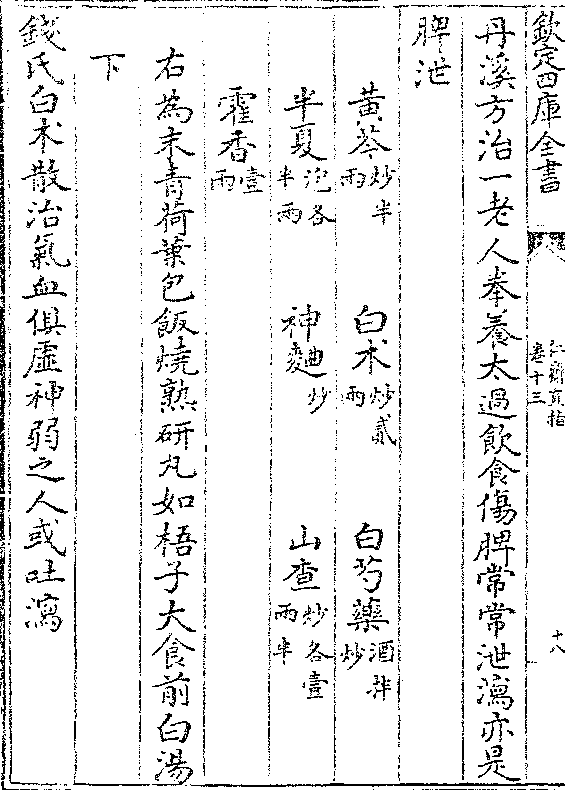 欽定四庫全書
仁齋直指
卷十三
十八
丹溪方治一老人奉養太過飲食傷脾常常泄瀉亦是
脾泄
黄芩炒半兩 白术炒貳兩 白芍藥酒拌炒
半夏泡各半兩 神麯炒 山查炒各壹兩半
霍香壹兩
右為末青荷葉包飯燒熟研丸如梧子大食前白湯
下
錢氏白术散治氣血俱虛神弱之人或吐瀉